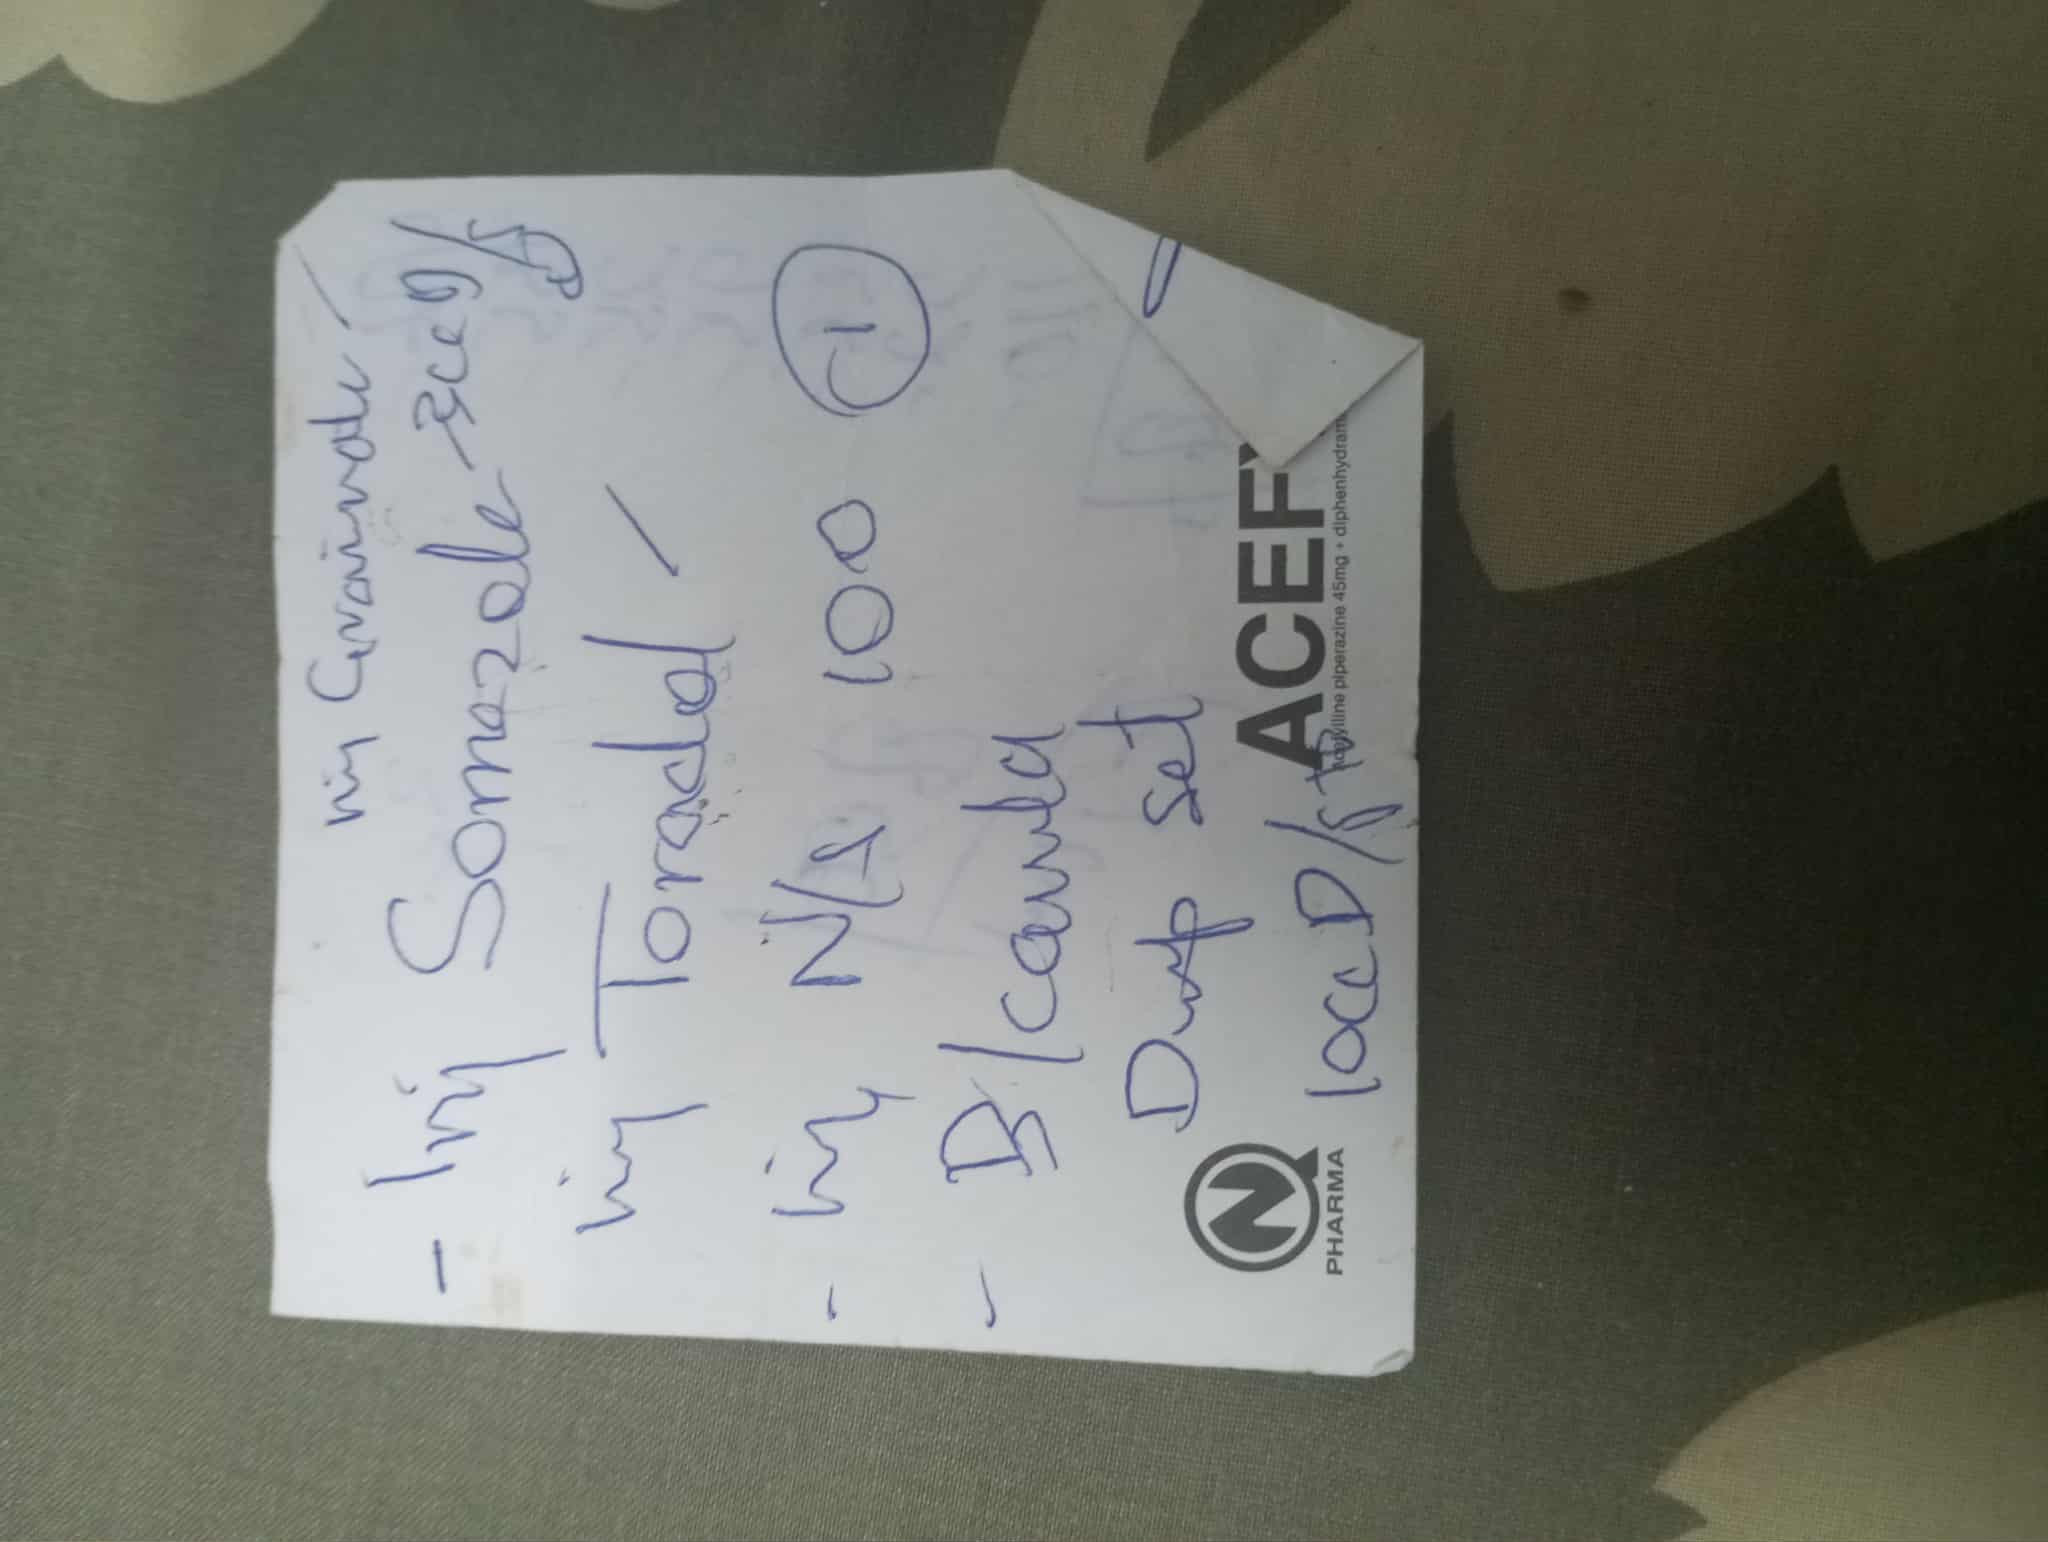 inj Gravinate /
- Inj Somazole - 3cc g/s
inj Toradol /
- inj N/S 100 1
- B/canula
Drip set
10cc D/s
N
PHARMA
ACEF
acefylline piperazine 45mg + diphenhydram